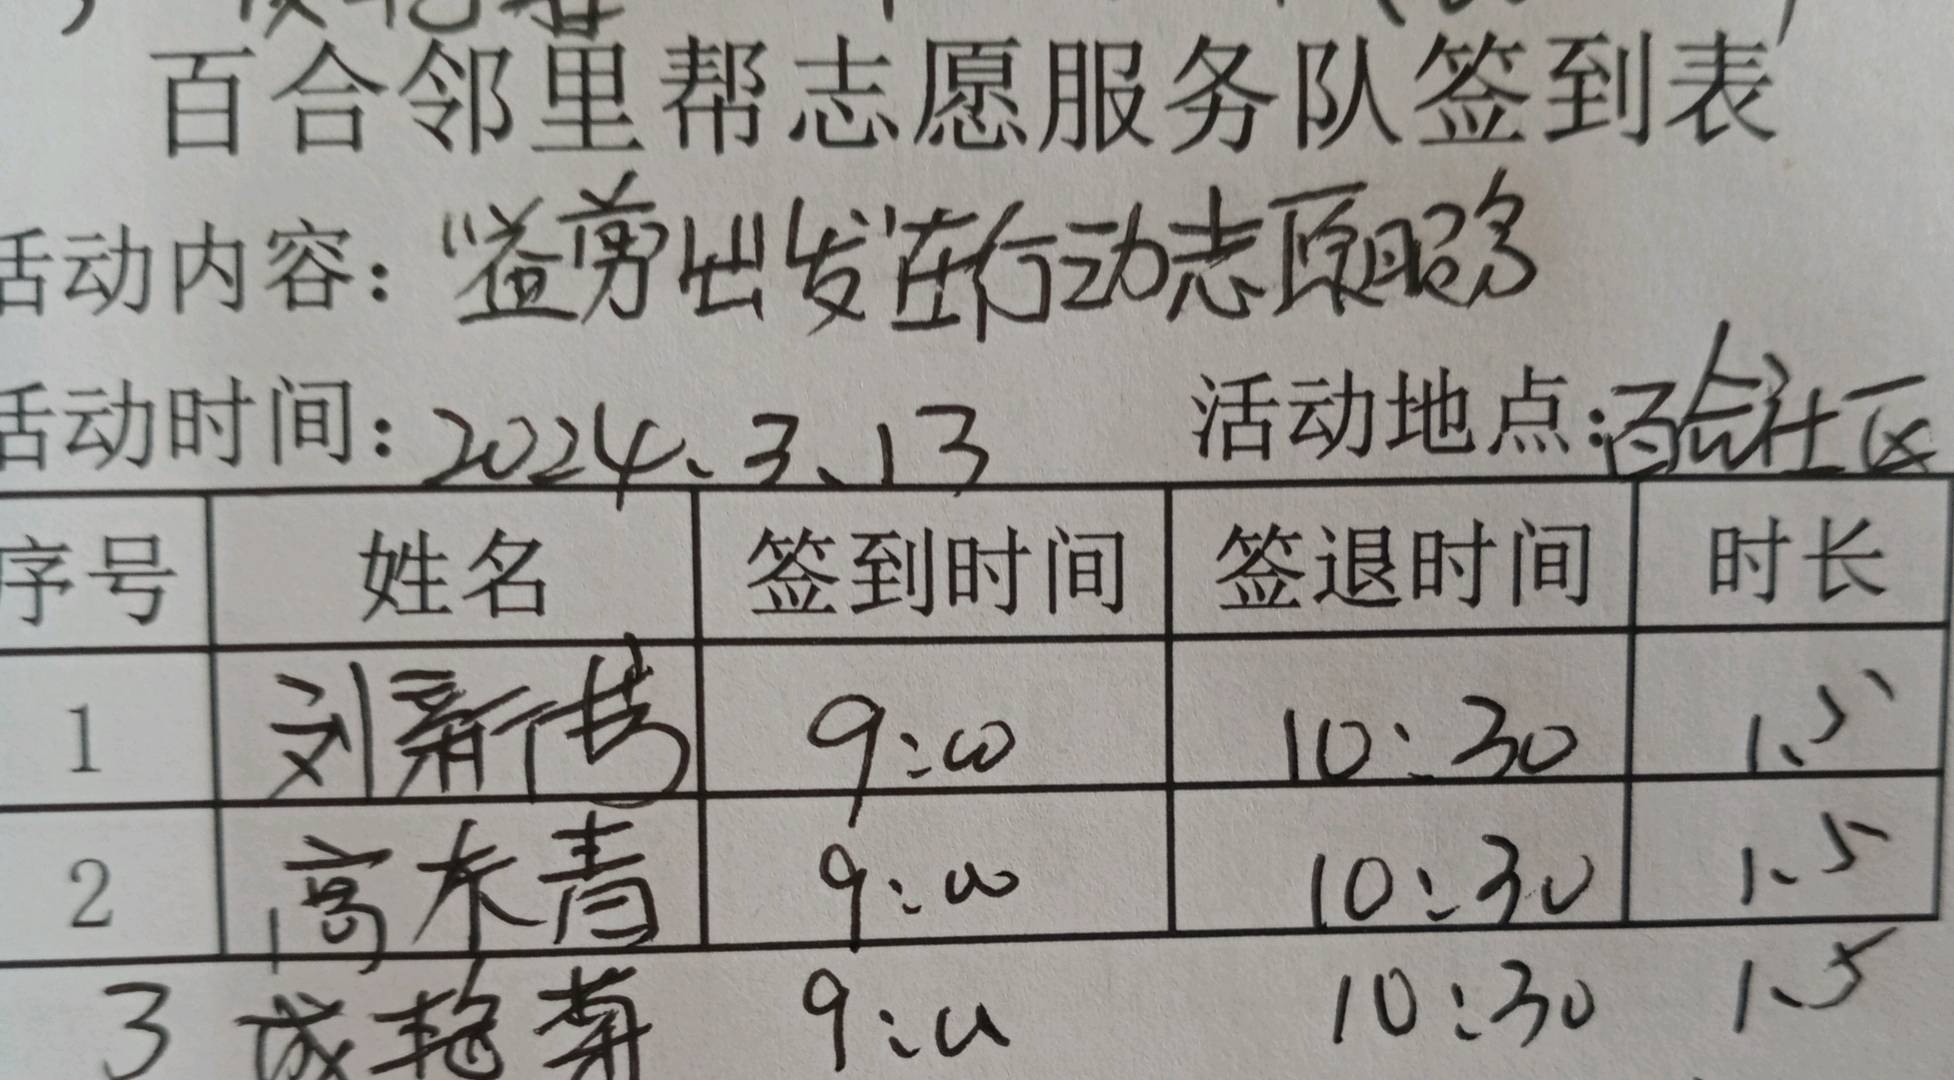 百合邻里帮志愿服务队签到表
活动内容：“益剪出发”在行动志愿服务
活动时间：2024、3、13 活动地点：百合社区
序号 姓名 签到时间 签退时间 时长
1 刘新 9:00 10:30 1.5
2 高木青 9:00 10:30 1.5
3 成艳菊 9:00 10:30 1.5